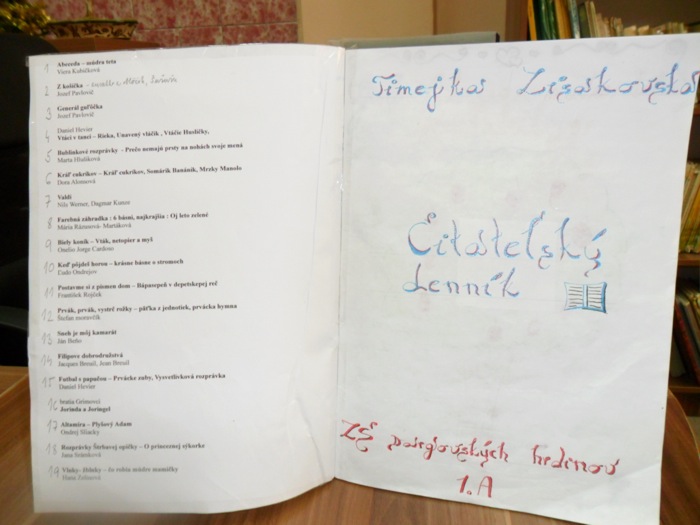 1 Abeceda – múdra teta
Viera Kubičková
2 Z kolíčka –
Jozef Pavlovič
3 Generál guľôčka
Jozef Pavlovič
4 Daniel Hevier
Vtáci v tanci – Rieka, Unavený vláčik , Vtáčie Husličky,
5 Bublinkové rozprávky – Prečo nemajú prsty na nohách svoje mená
Marta Hlušíková
6 Kráľ cukríkov – Kráľ cukríkov, Somárik Banánik, Mrzky Manolo
Dora Alonsová
7 Valdi
Nils Werner, Dagmar
8 Farebná záhradka : 6 básní, najkrajšia : Oj leto zelené
Mária Rázusová- Martáková
9 Biely koník – Vták, netopier a myš
Onelio Jorge Cardoso
10 Keď pôjdeš horou – krásne básne o stromoch
Ľudo Ondrejov
11 Postavme si z písmen dom – Bápasepeň v depetskepej reč
František Rojček
12 Prvák, prvák, vystrč rožky – päťka z jednotiek, prvácka hymna
Štefan moravčík
13 Sneh je môj kamarát
Ján Beňo
14 Filipove dobrodružstvá
Jacques Breuil, Jean Breuil
15 Futbal s papučou – Prvácke zuby, Vysvetlivková rozprávka
Daniel Hevier
16 bratia Grimovci
Jorinda a Joringel
17 Altamira – Plyšový Adam
Ondrej Sliacky
18 Rozprávky Štrbavej opičky – O princeznej sýkorke
Jana Šrámková
19 Vlnky- žblnky – čo robia múdre mamičky
Hana Zelinová
Timejka Lisakovská
Čitateľský
denník
ZŠ dargovských hrdinov
1. A